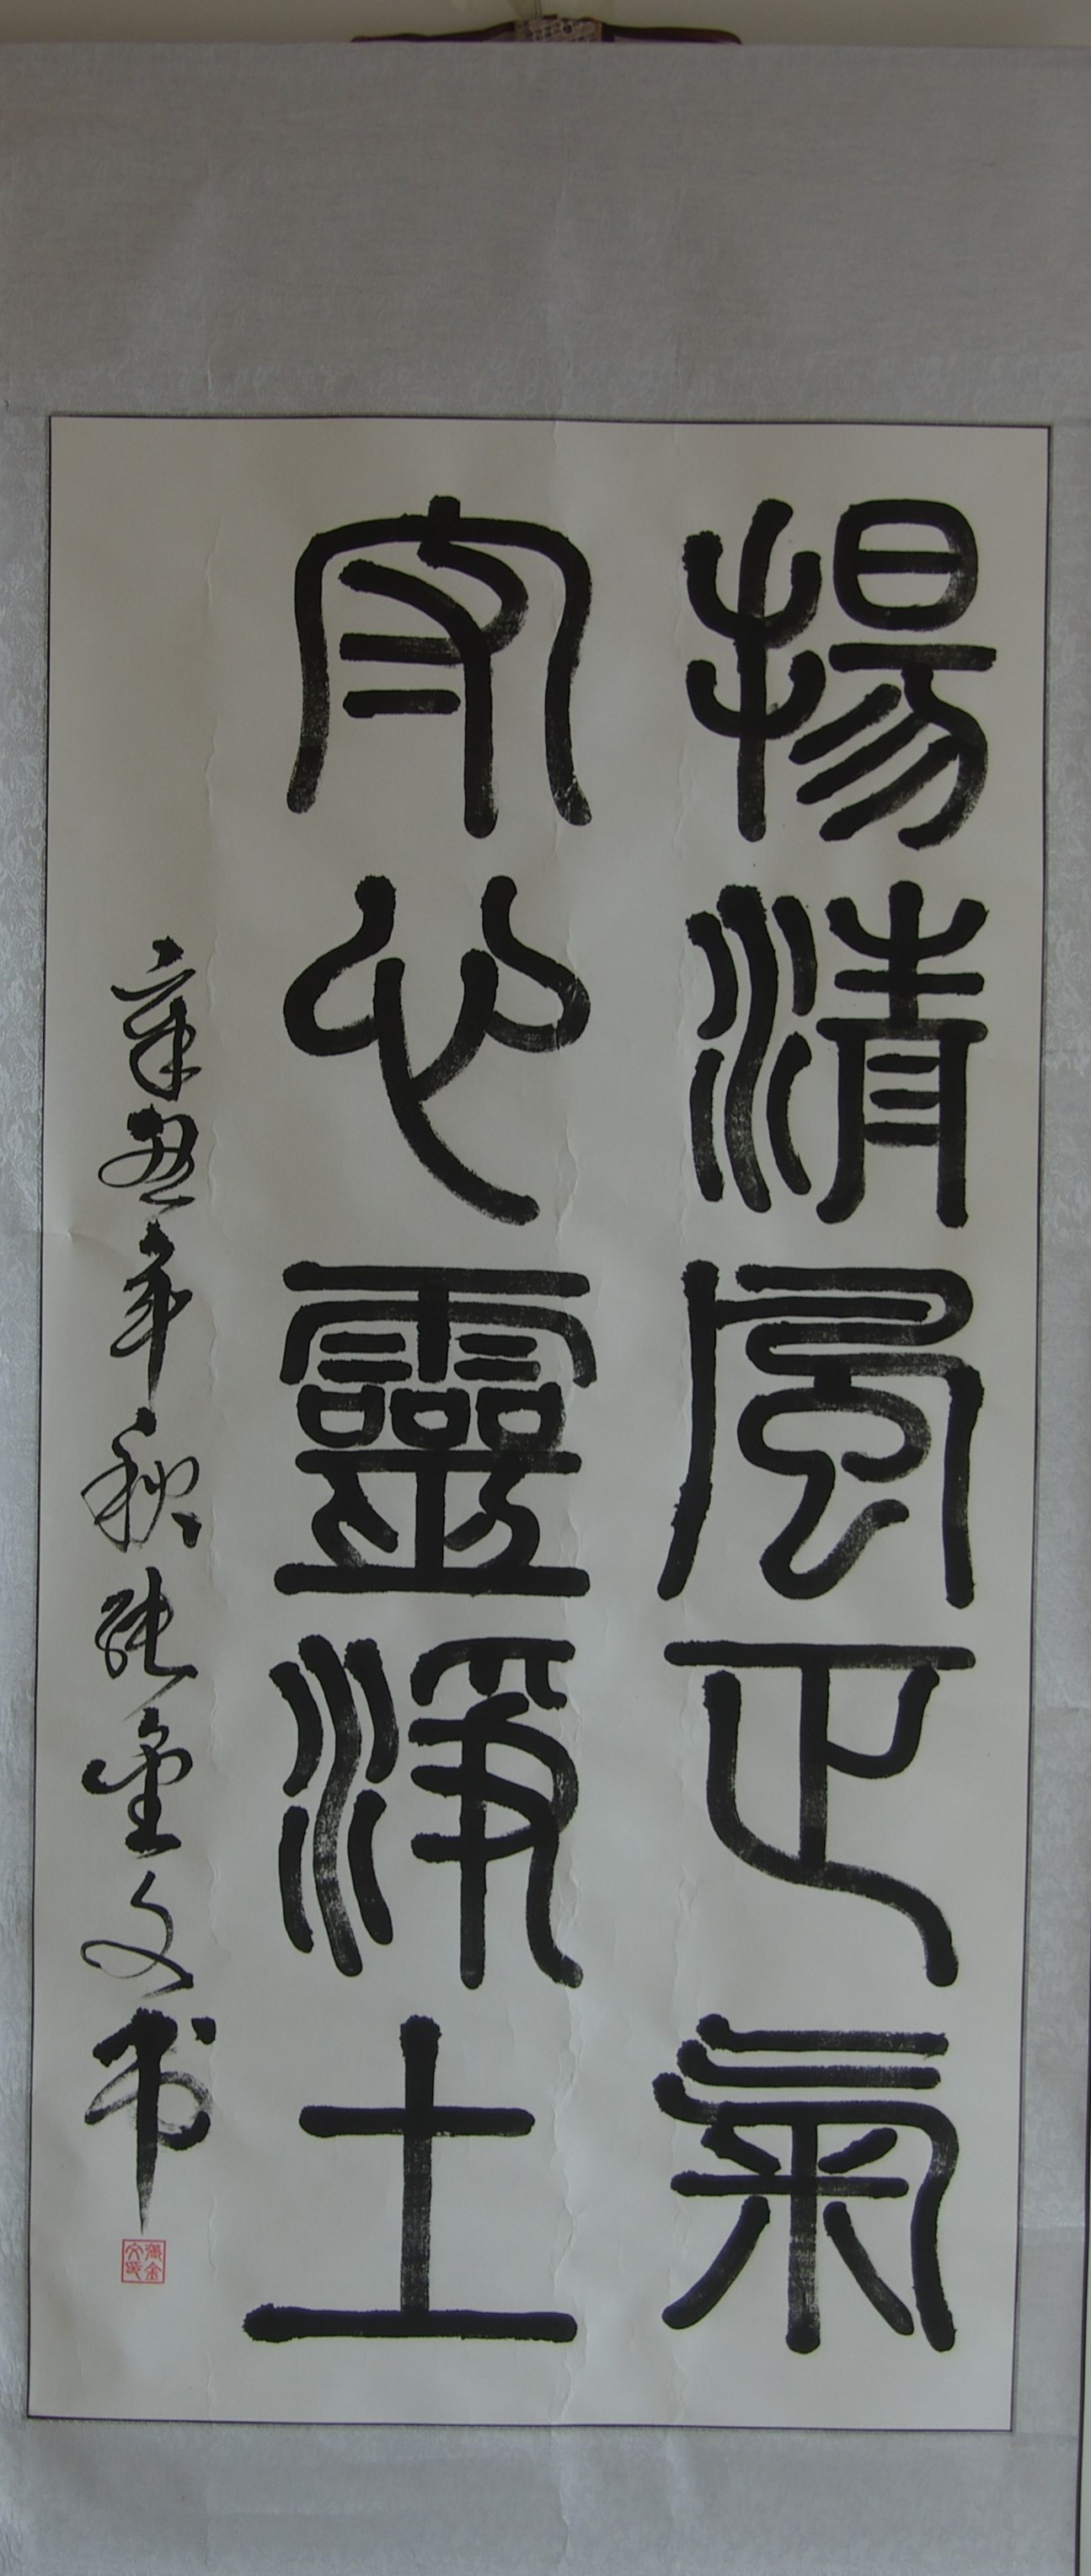 揚清風正氣
守心靈淨土
辛丑年秋張金文书
張金文印